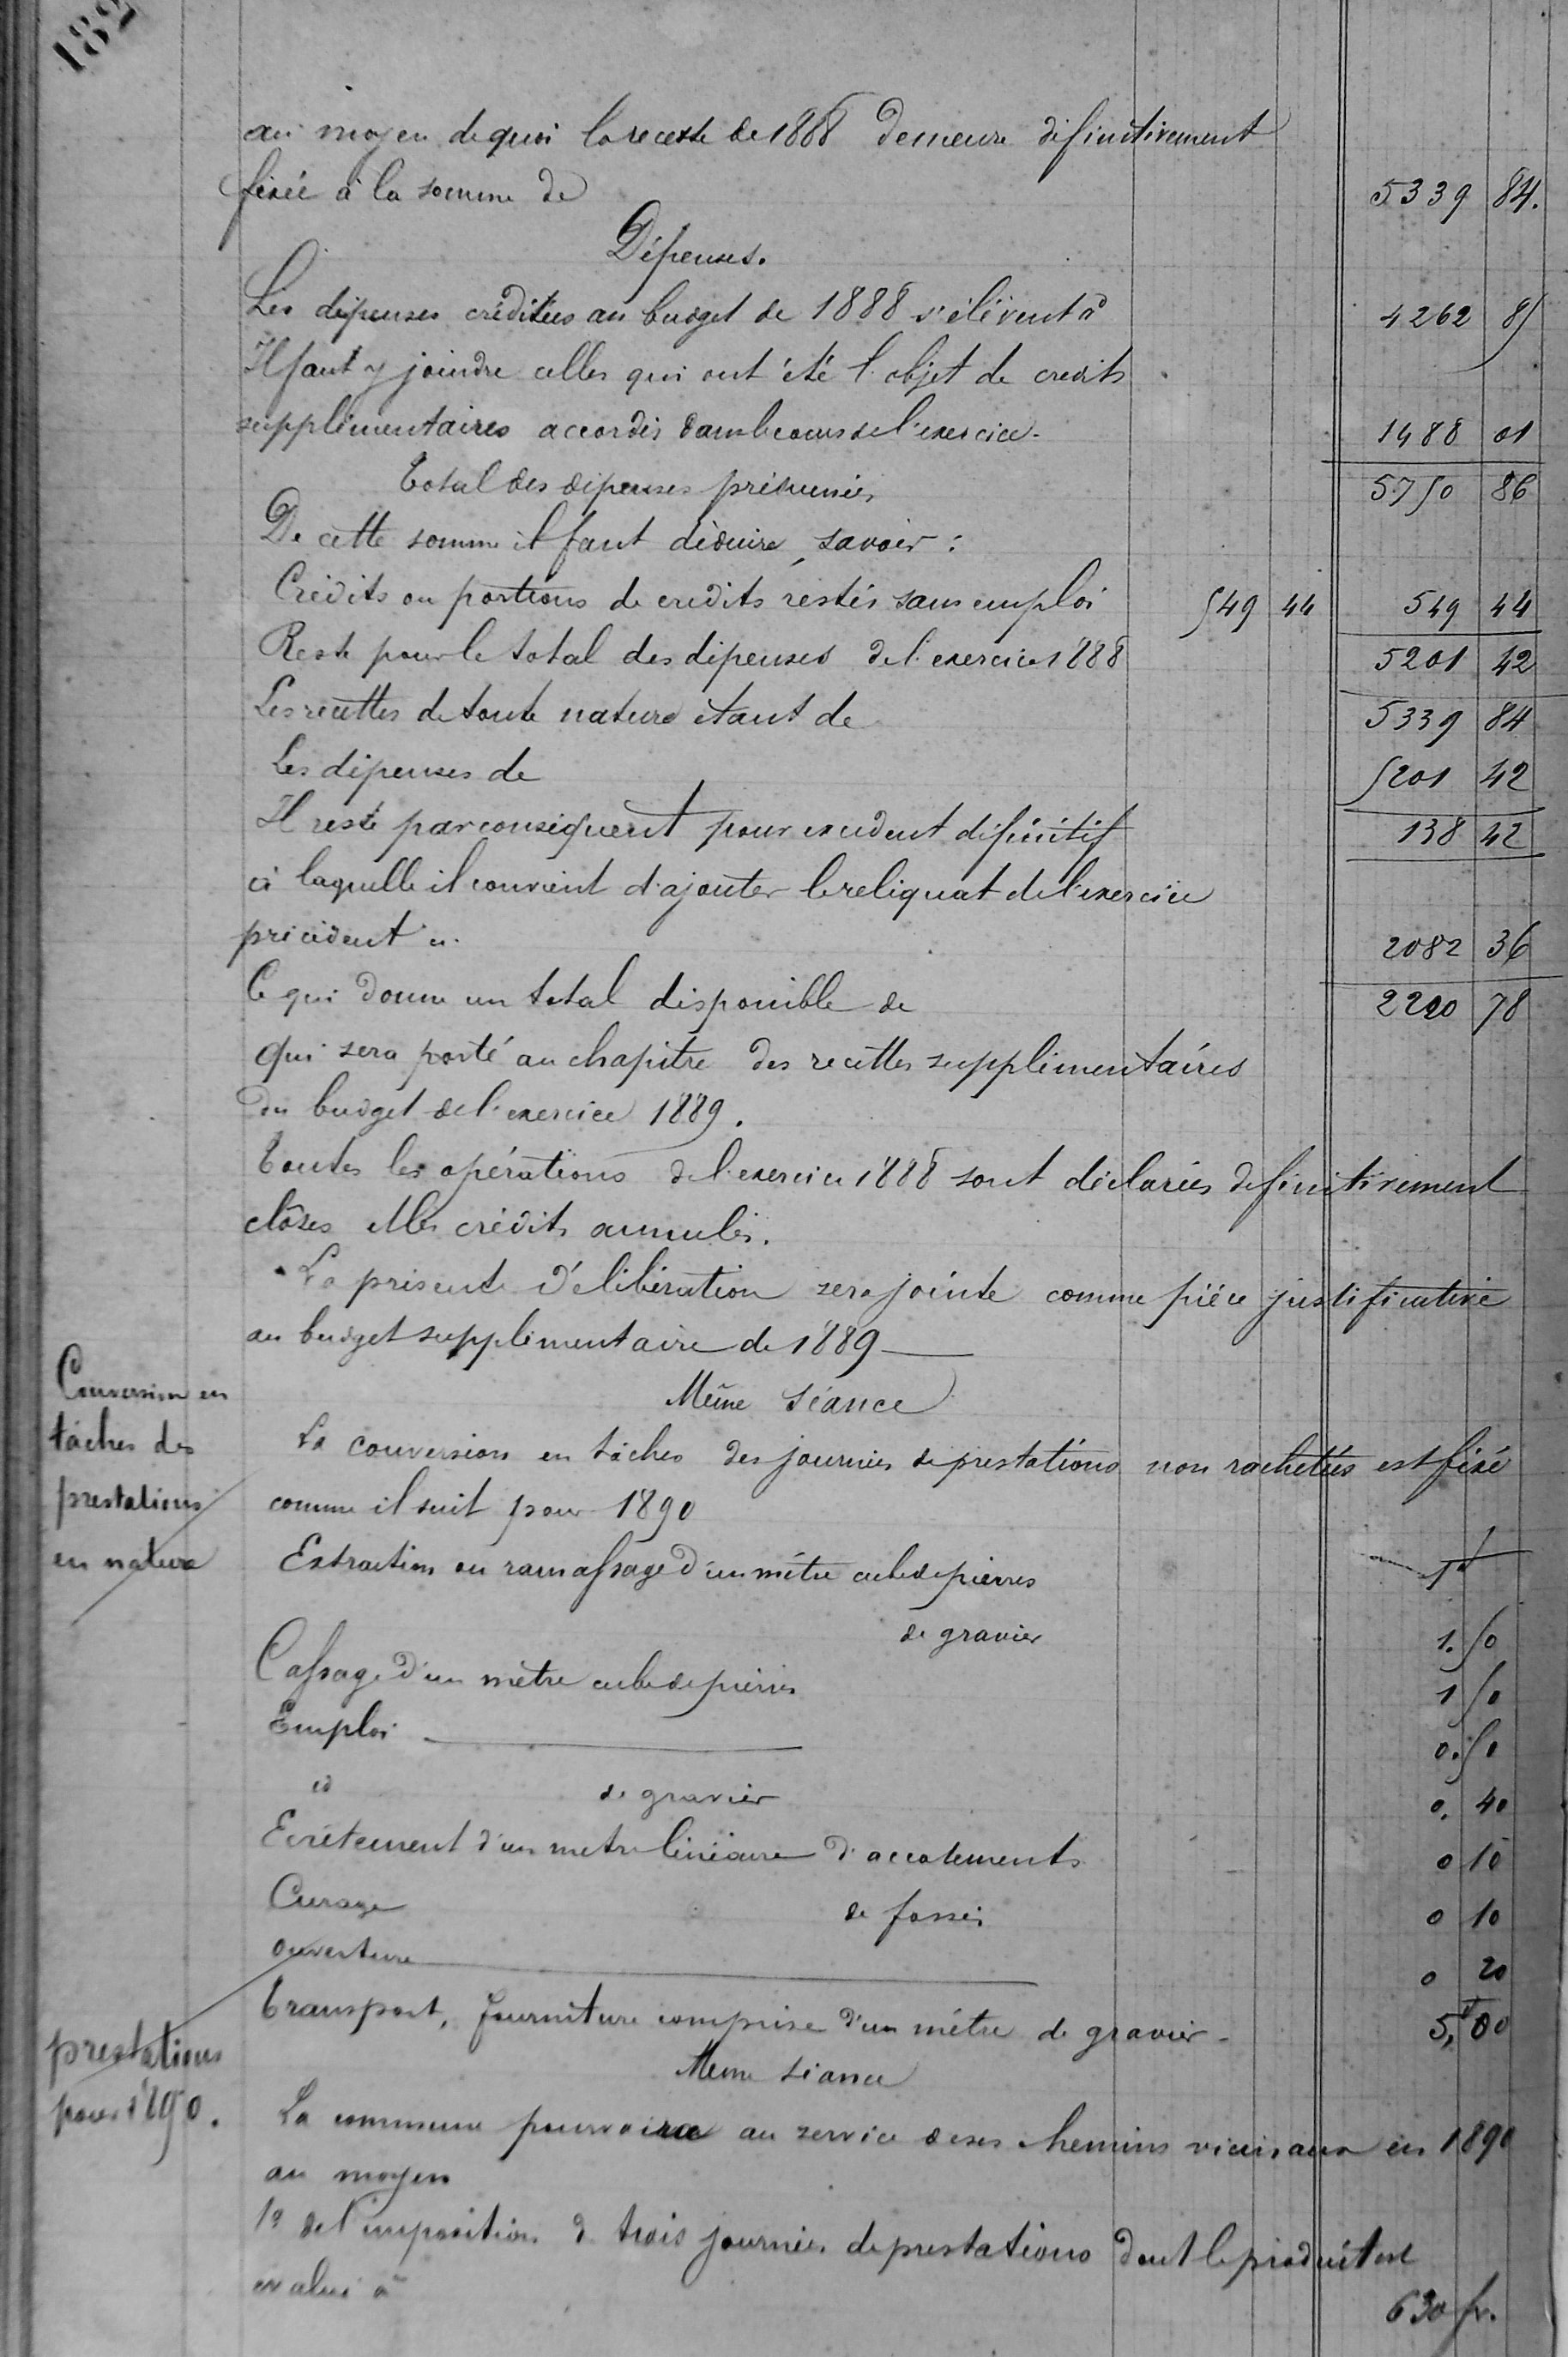 182
au moyen de quoi la recette de 1888 demeure définitivement
fixée à la somme de 5339 84.
Dépenses.
Les dépenses créditées au budget de 1888 s'élèvent à 4262 85
Il faut y joindre celles qui ont été l'objet de crédits
supplémentaires accordés dans le cours de l'exercice. 1488 01
Total des dépenses présumées 5750 86
De cette somme il faut déduire, savoir :
Crédits ou portions de crédits restés sans emploi 549 44 549 44
Reste pour le total des dépenses de l'exercice 1888 5201 42
Les recettes de toute nature étant de 5339 84
Les dépenses de 5201 42
Il reste par conséquent pour excédent définitif 138 42
à laquelle il convient d'ajouter le reliquat de l'exercice
précédent 2082 36
Ce qui donne un total disponible de 2220 78
qui sera porté au chapitre des recettes supplémentaires
du budget de l'exercice 1889.
Toutes les opérations de l'exercice 1888 sont déclarées définitivement
closes et les crédits annulés.
La présente délibération sera jointe comme pièce justificative
au budget supplémentaire de 1889
Conversion en
tâches des
prestations
en nature
Même séance
La conversion en tâches des journées de prestations non rachetées est fixé
comme il suit pour 1890
Extraction ou ramassage d'un mètre cube de pierres
de gravier 1.50
Cassage d'un mètre cube de pierres 1 50
Emploi 0.50
id de gravier 0. 40
Ecrêtement d'un metre linéaire d'accotements 0 10
Curage de fossés 0 10
ouverture 0 20
Transport, fourniture comprise d'un mètre de gravier 5,00
prestations
pour 1890.
Meme séance
La commune pourvoira au service de ses chemins vicinaux en 1890
au moyen
1º de l'imposition de trois journées de prestations dont le produit est
évalué à 630 fr.